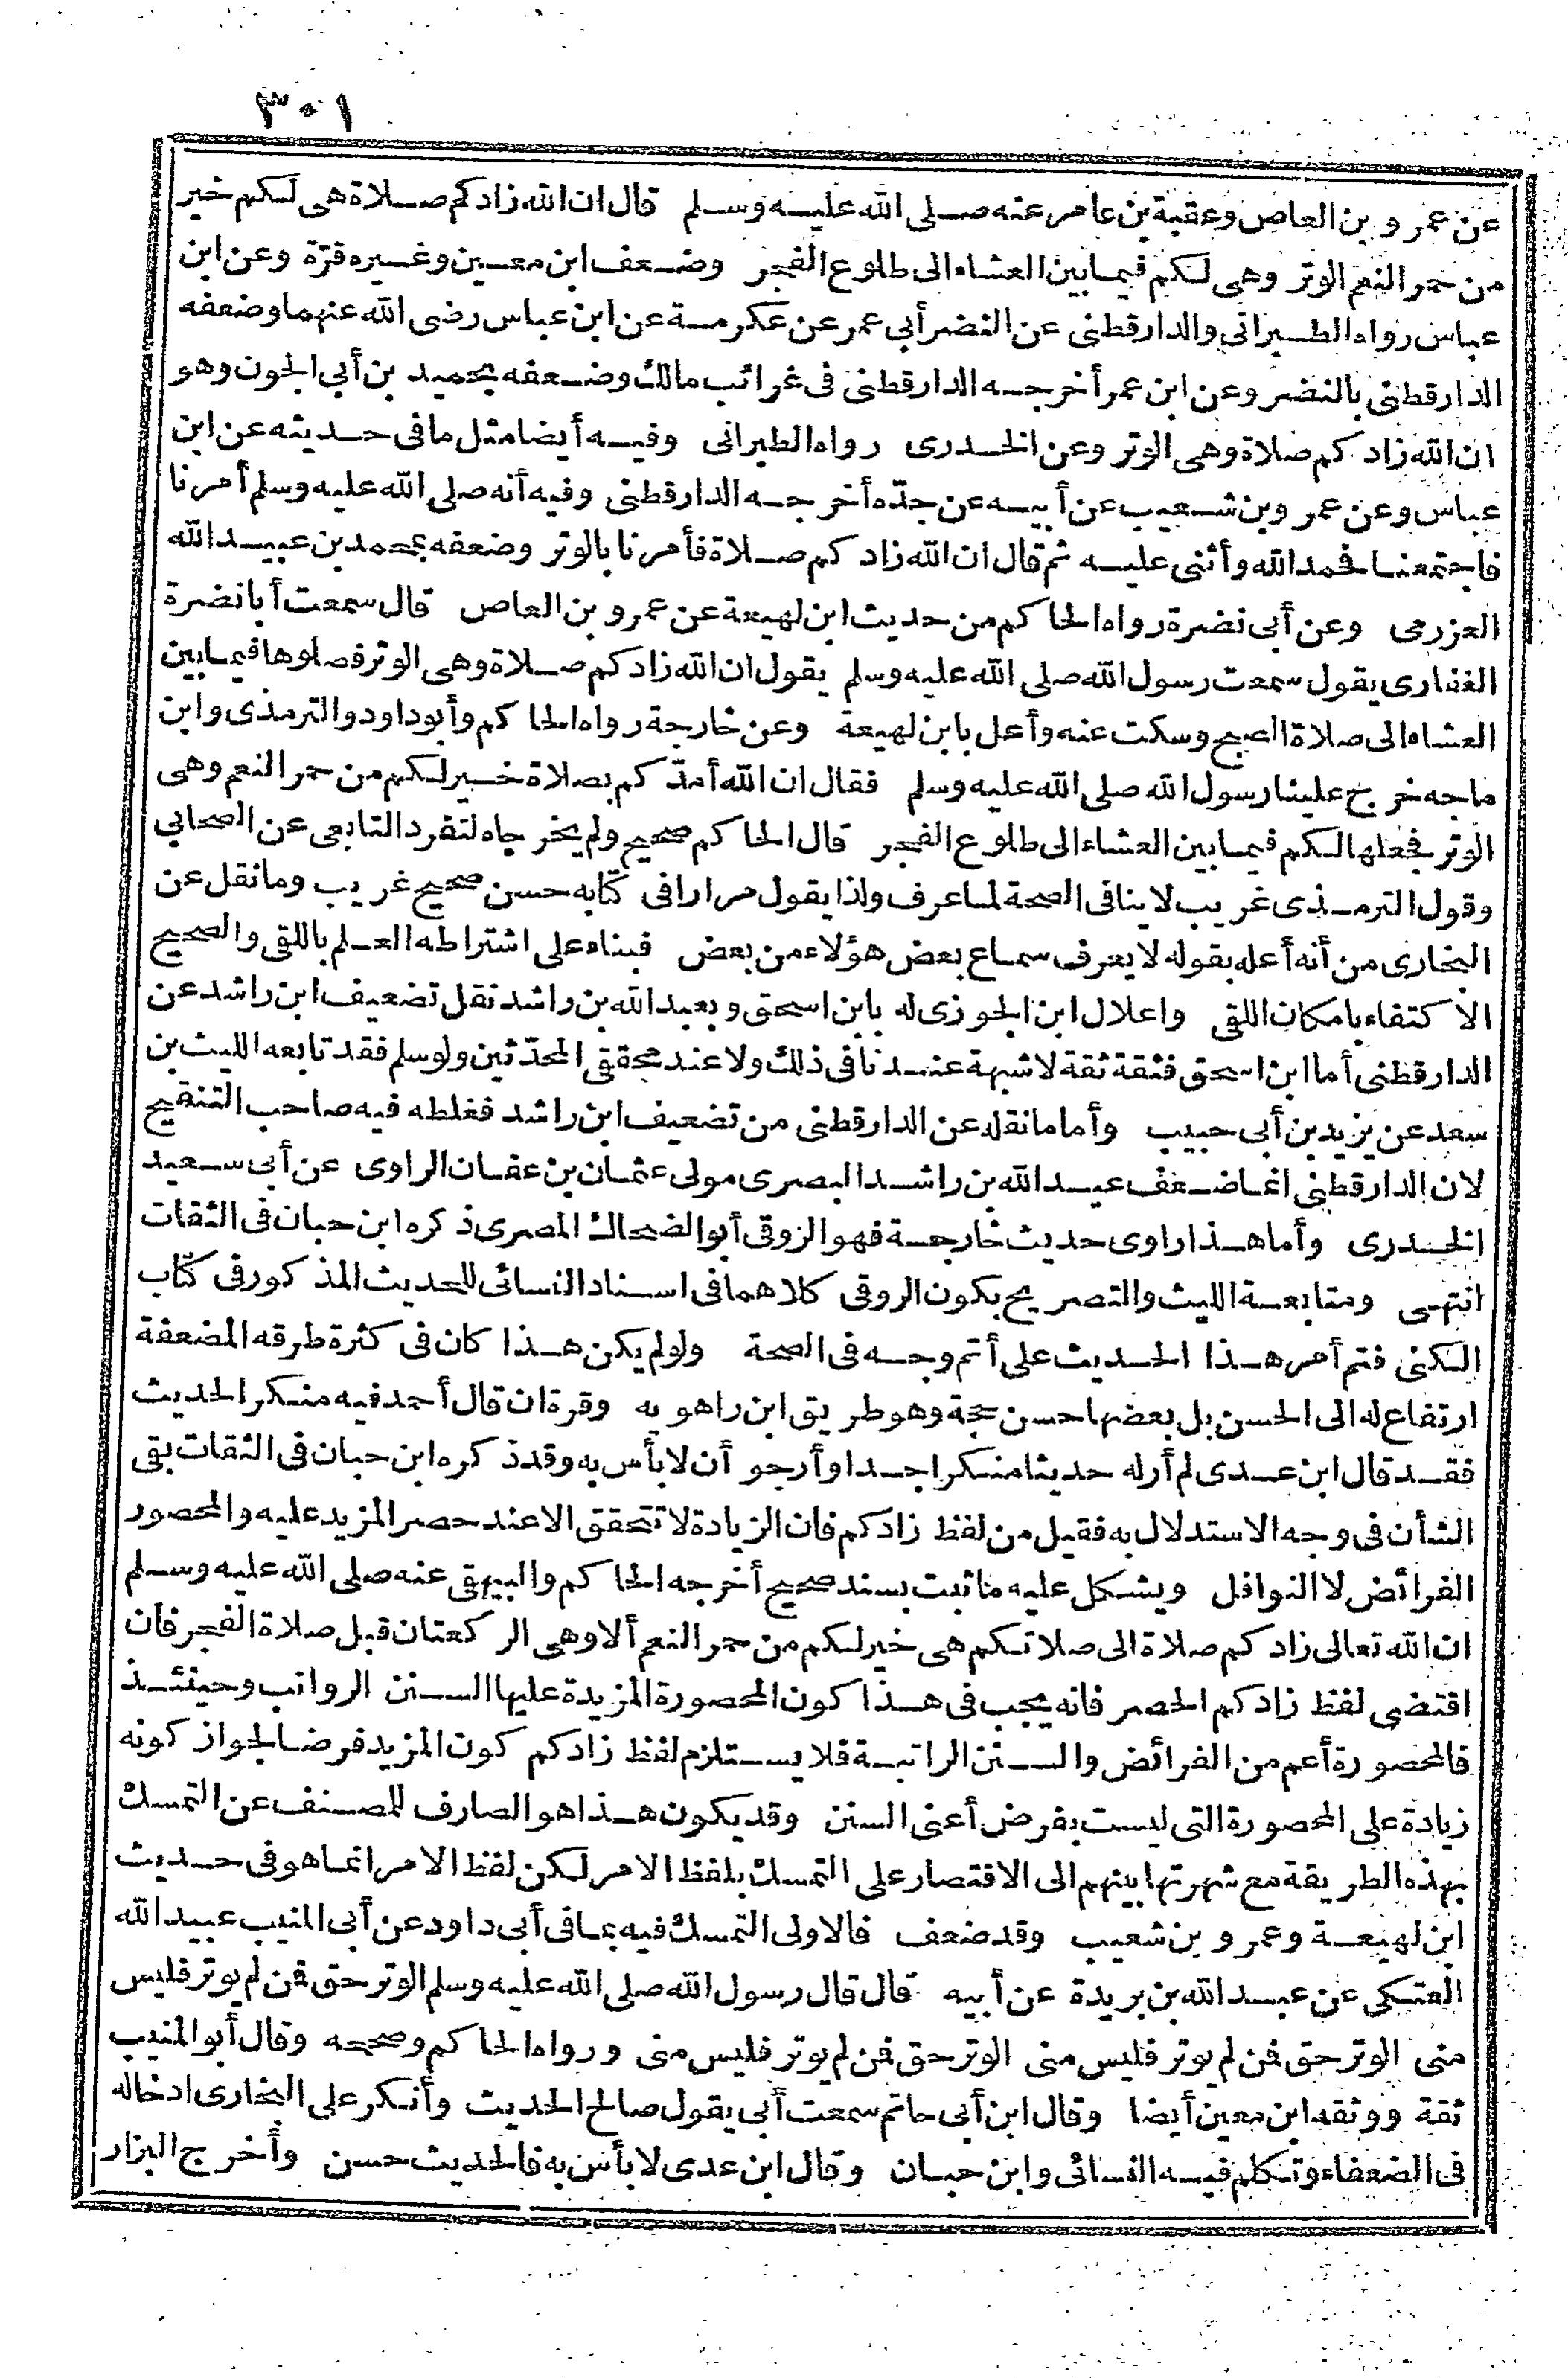 ٣٠١
عن عمرو بن العاص وعقبة بن عامر عنه صلى الله عليه وسلم قال ان الله زادكم صلاة هى لكم خير
من حمر النعم الوتر وهى لكم فيما بين العشاء الى طلوع الفجر وضعف ابن معين وغيره قرّة وعن ابن
عباس رواه الطبرانى والدارقطنى عن النضر أبى عمر عن عكرمة عن ابن عباس رضى الله عنهما وضعفه
الدارقطنى بالنضر وعن ابن عمر أخرجه الدارقطنى فى غرائب مالك وضعفه بحميد بن أبى الجون وهو
ان الله زادكم صلاة وهى الوتر وعن الخدرى رواه الطبرانى وفيه أيضا مثل ما فى حديثه عن ابن
عباس وعن عمرو بن شعيب عن أبيه عن جدّه أخرجه الدارقطنى وفيه أنه صلى الله عليه وسلم أمرنا
فاجتمعنا فحمد الله وأثنى عليه ثم قال ان الله زادكم صلاة فأمرنا بالوتر وضعفه بمحمد بن عبيد الله
العزرمى وعن أبى نضرة رواه الحاكم من حديث ابن لهيعة عن عمرو بن العاص قال سمعت أبا نضرة
الغفارى يقول سمعت رسول الله صلى الله عليه وسلم يقول ان الله زادكم صلاة وهى الوتر فصلوها فيما بين
العشاء الى صلاة الصبح وسكت عنه وأعل بابن لهيعة وعن خارجة رواه الحاكم وأبو داود والترمذى وابن
ماجه خرج علينا رسول الله صلى الله عليه وسلم فقال ان الله أمدّكم بصلاة خير لكم من حمر النعم وهى
الوتر فجعلها لكم فيما بين العشاء الى طلوع الفجر قال الحاكم صحيح ولم يخرجاه لتفرد التابعى عن الصحابى
وقول الترمذى غريب لا ينافى الصحة لما عرف ولذا يقول مرارا فى كتابه حسن صحيح غريب وما نقل عن
البخارى من أنه أعله بقوله لا يعرف سماع بعض هؤلاء من بعض فبناء على اشتراطه العلم باللقى والصحيح
الاكتفاء بامكان اللقى واعلال ابن الجوزى له بابن اسحق وبعبد الله بن راشد نقل تضعيف ابن راشد عن
الدارقطنى أما ابن اسحق فثقة ثقة لا شبهة عندنا فى ذلك ولا عند محققى المحدّثين ولو سلم فقد تابعه الليث بن
سعد عن يزيد بن أبى حبيب وأما ما نقله عن الدارقطنى من تضعيف ابن راشد فغلطه فيه صاحب التنقيح
لان الدارقطنى انما ضعف عبد الله بن راشد البصرى مولى عثمان بن عفان الراوى عن أبى سعيد
الخدرى وأما هذا راوى حديث خارجة فهو الزوقى أبو الضحاك المصرى ذكره ابن حبان فى الثقات
انتهى ومتابعة الليث والتصريح بكون الروقى كلاهما فى اسناد النسائى للحديث المذكور فى كتاب
الكنى فتم أمر هذا الحديث على أتم وجه فى الصحة ولو لم يكن هذا كان فى كثرة طرقه المضعفة
ارتفاع له الى الحسن بل بعضها حسن حجة وهو طريق ابن راهويه وقرة ان قال أحمد فيه منكر الحديث
فقد قال ابن عدى لم أر له حديثا منكرا جدا وأرجو أن لا بأس به وقد ذكره ابن حبان فى الثقات بقى
الشأن فى وجه الاستدلال به فقيل من لفظ زادكم فان الزيادة لا تتحقق الا عند حصر المزيد عليه والمحصور
الفرائض لا النوافل ويشكل عليه ما ثبت بسند صحيح أخرجه الحاكم والبيهقى عنه صلى الله عليه وسلم
ان الله تعالى زادكم صلاة الى صلاتكم هى خير لكم من حمر النعم ألا وهى الركعتان قبل صلاة الفجر فان
اقتضى لفظ زادكم الحصر فانه يجب فى هذا كون المحصورة المزيدة عليها السنن الرواتب وحينئذ
فالمحصورة أعم من الفرائض والسنن الراتبة فلا يستلزم لفظ زادكم كون المزيد فرضا لجواز كونه
زيادة على المحصورة التى ليست بفرض أعنى السنن وقد يكون هذا هو الصارف للمصنف عن التمسك
بهذه الطريقة مع شهرتها بينهم الى الاقتصار على التمسك بلفظ الامر لكن لفظ الامر انما هو فى حديث
ابن لهيعة وعمرو بن شعيب وقد ضعف فالاولى التمسك فيه بما فى أبى داود عن أبى المنيب عبيد الله
العتكى عن عبد الله بن بريدة عن أبيه قال قال رسول الله صلى الله عليه وسلم الوتر حق فمن لم يوتر فليس
منى الوتر حق فمن لم يوتر فليس منى الوتر حق فمن لم يوتر فليس منى ورواه الحاكم وصححه وقال أبو المنيب
ثقة ووثقه ابن معين أيضا وقال ابن أبى حاتم سمعت أبى يقول صالح الحديث وأنكر على البخارى ادخاله
فى الضعفاء وتكلم فيه النسائى وابن حبان وقال ابن عدى لا بأس به فالحديث حسن وأخرج البزار